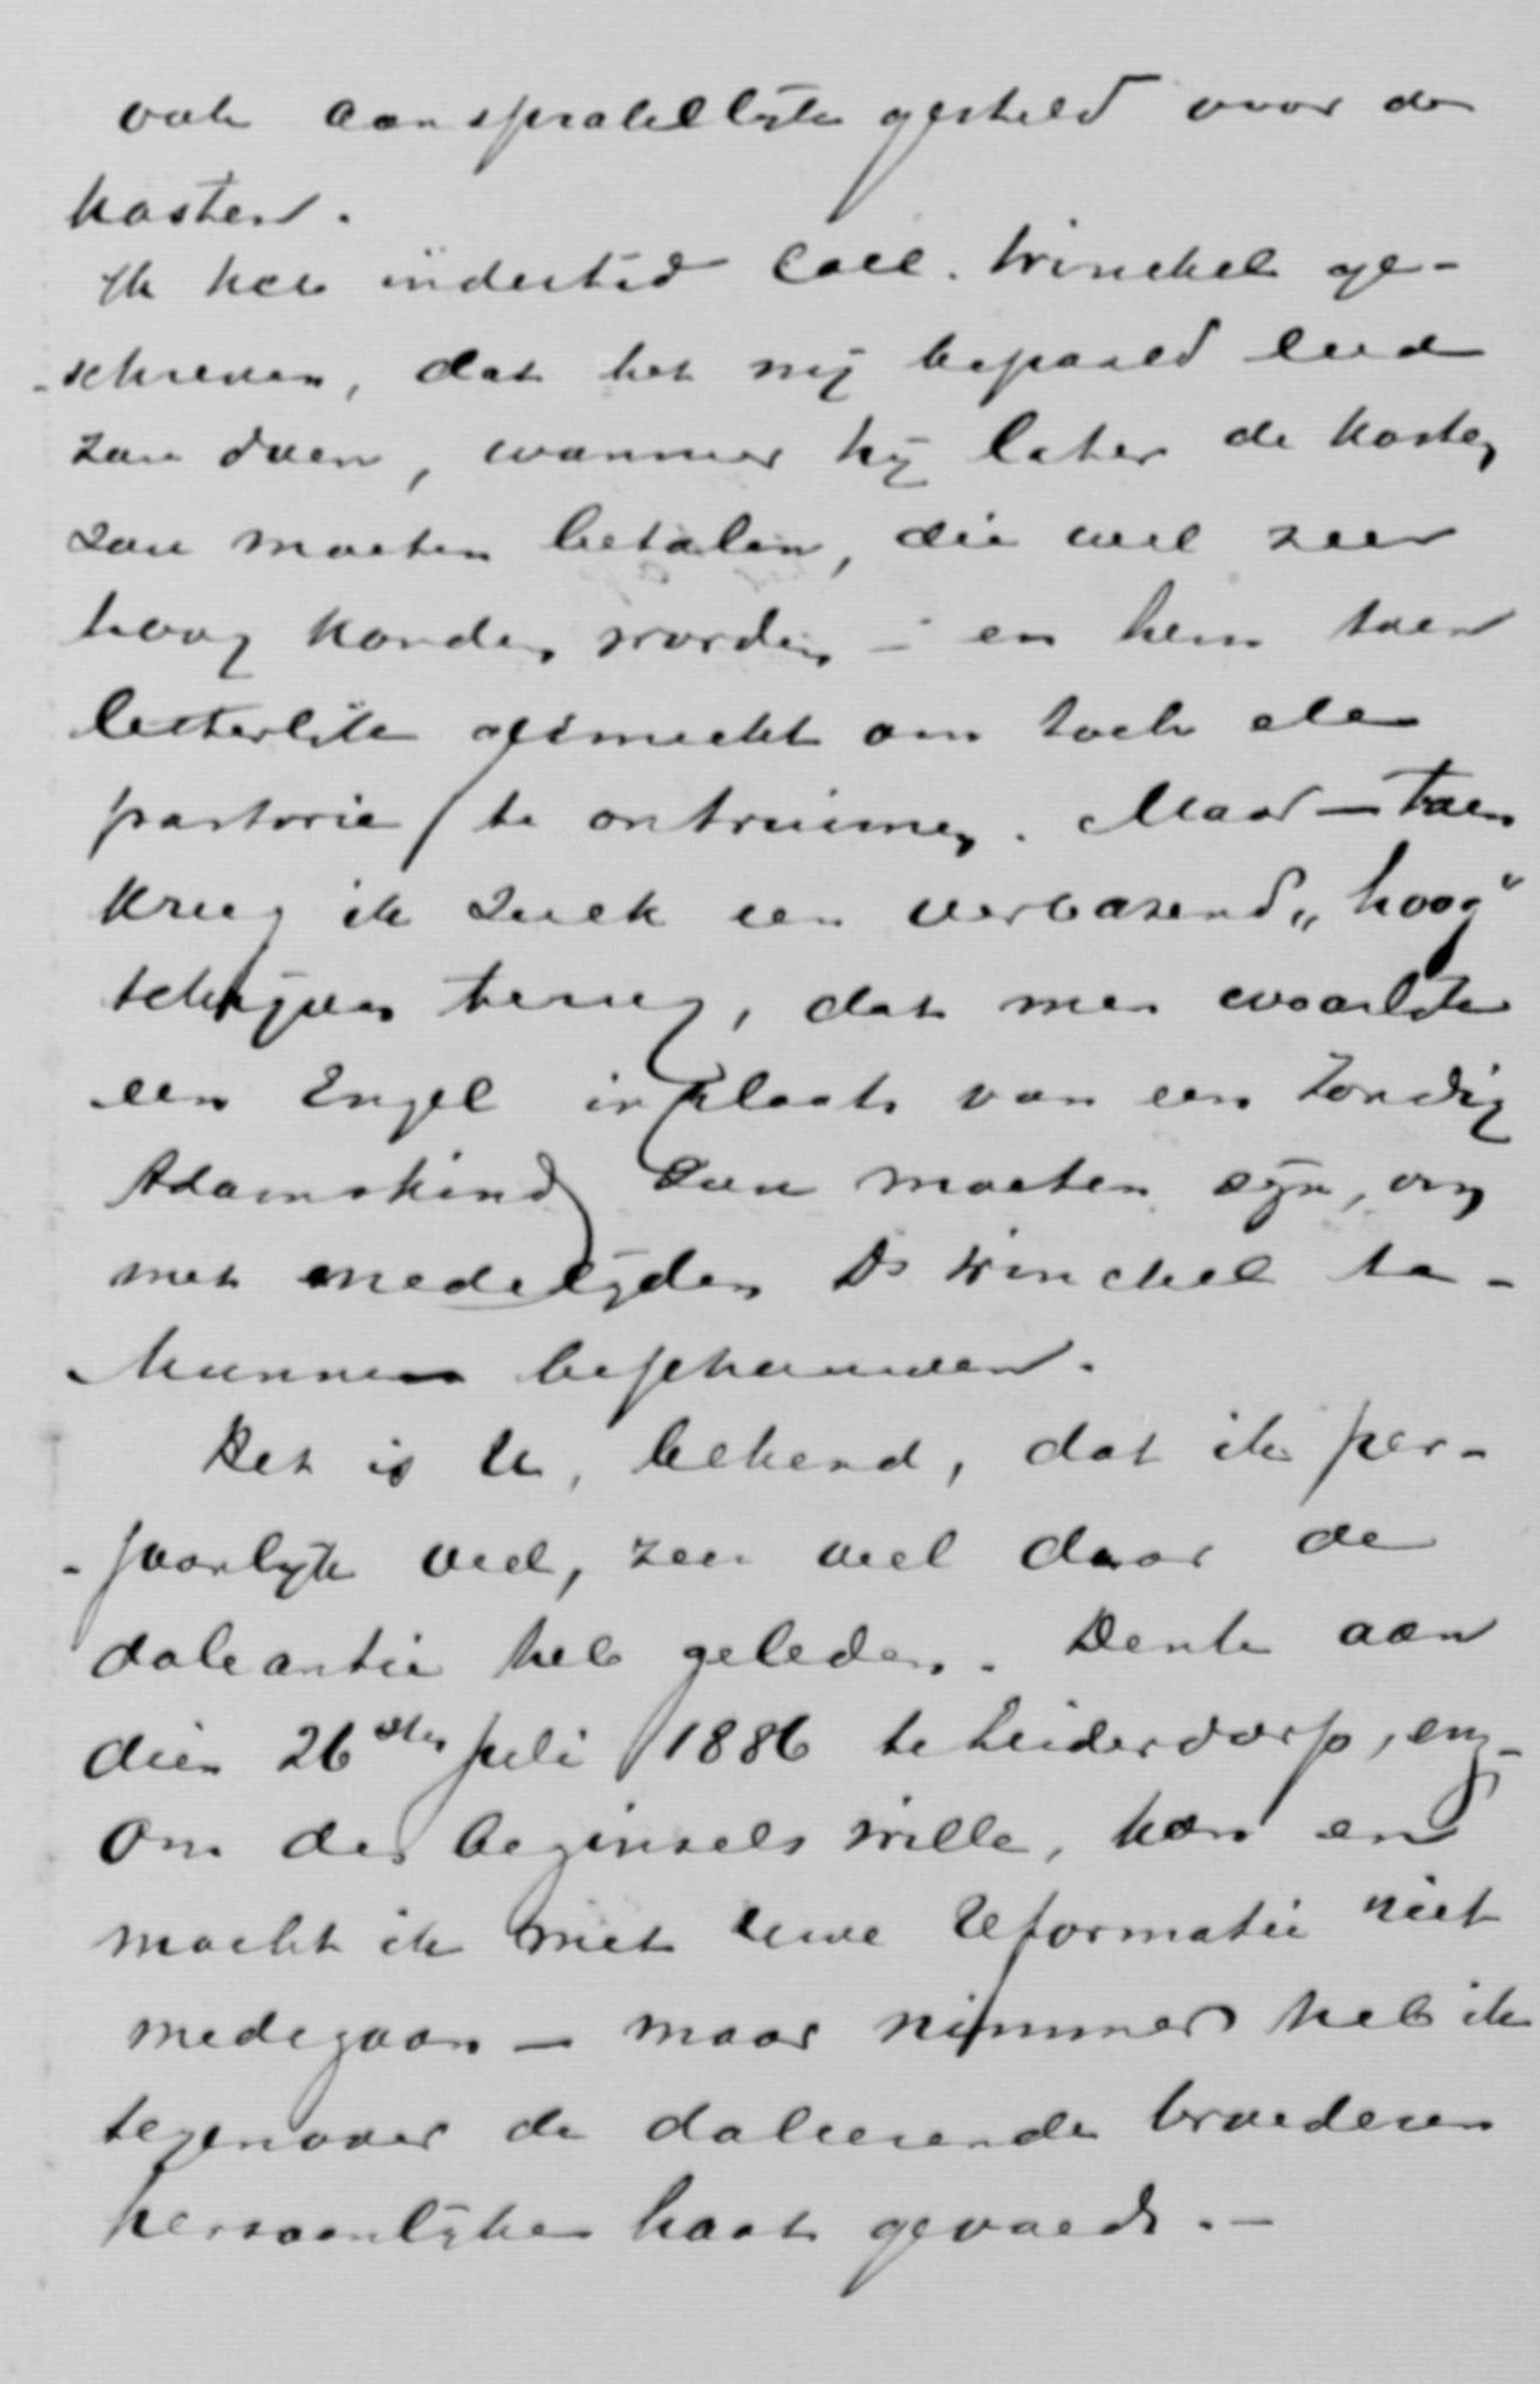 ook aansprakelijk gesteld voor de
kosten.
Ik heb indertijd Coll. Winckel ge-
-schreven, dat het mij bepaald leed
zou doen, wanneer hij later de kosten
zou moeten betalen, die wel zeer
hoog konden worden - en hem toen
letterlijk gesmeekt om toch de
pastorie te ontruimen. Maar - toen
kreeg ik zulk een verbazend „hoog"
schrijven terug, dat men waarlijk
een Engel in plaats van een zondig
Adamskind zou moeten zijn, om
met medelijden Ds Winckel te
kunnen beschouwen.
Het is U, bekend, dat ik per-
-soonlijk veel, zeer veel door de
doleantie heb geleden. Denk aan
dien 26sten Juli 1886 te Leiderdorp, en -
om des beginsels wille, kon en
mocht ik met uwe Reformatie niet
medegaan - maar nimmer heb ik
tegenover de doleerende broederen
persoonlijken haat gevoed. -